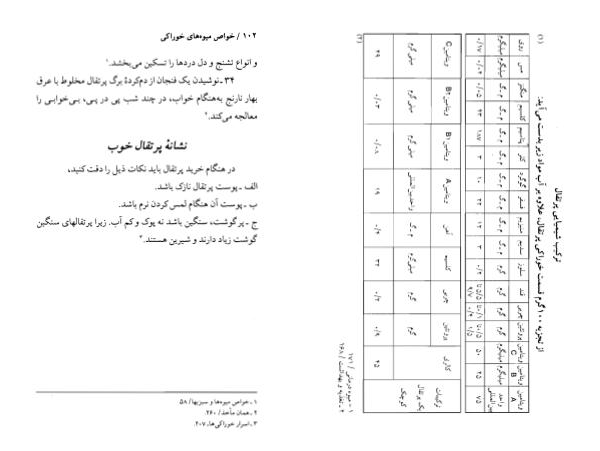 ۱۰۲ / خواص میوه‌های خوراکی
و انواع تشنج و دل دردها را تسکین می‌بخشد.¹
۳۴ـ نوشیدن یک فنجان از دم‌کردهٔ برگ پرتقال مخلوط با عرق
بهار نارنج به‌هنگام خواب، در چند شب پی در پی، بی‌خوابی را
معالجه می‌کند.²
نشانهٔ پرتقال خوب
در هنگام خرید پرتقال باید نکات ذیل را دقت کنید،
الف ـ پوست پرتقال نازک باشد.
ب ـ پوست آن هنگام لمس‌کردن نرم باشد.
ج ـ پرگوشت، سنگین باشد نه پوک و کم آب. زیرا پرتقالهای سنگین
گوشت زیاد دارند و شیرین هستند.³
۱ ـ خواص میوه‌ها و سبزیها/ ۵۸
۲ ـ همان مأخذ/ ۲۶۰.
۳ ـ اسرار خوراکی‌ها، ۲۰۷.
ترکیب شیمیایی پرتقال
از تجزیه ۱۰۰ گرم قسمت خوراکی پرتقال، علاوه بر آب مواد زیر بدست می‌آید:
(۱)
ویتامین A ویتامین B ویتامین C پروتئین چربی قند سلولز سدیم منیزیم فسفر گوگرد کلر پتاسیم کلسیم منگنز مس روی
(۲)
ترکیبات کالری پروتئین چربی کلسیم آهن ویتامین A ویتامین B۱ ویتامین B۲ ویتامین C
یک پرتقال کوچک گرم گرم میلی‌گرم م ـ گ واحدبین‌المللی میلی‌گرم میلی‌گرم میلی‌گرم
۱ ـ میوه درمانی/ ۱۷۱
۲ ـ تغذیه و بهداشت/ ۱۶۸